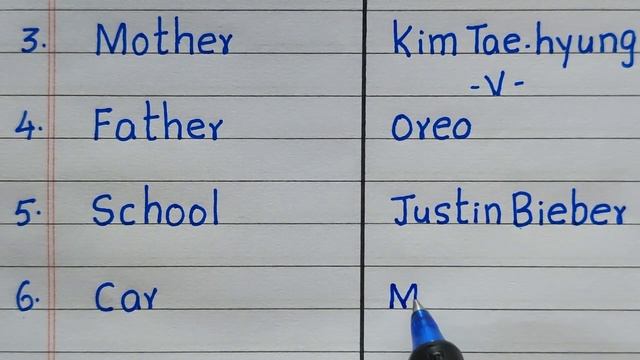 3. Mother Kim Tae-hyung
-V-
4. Father Oreo
5. School Justin Bieber
6. Car M